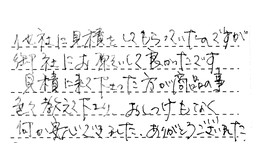 他社に見積もしてもらっていたのですが
御社にお願いして良かったです
見積に来て下さった方が商品の事
色々教えて下さり おしつけもなく
何か安心できました。ありがとうございました